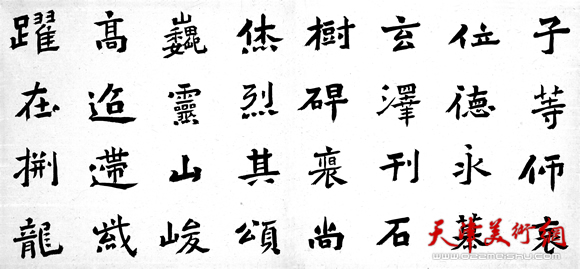 子等仰衷
位德永慕
玄澤刊石
樹碑褒尚
烋烈其頌
巍靈山峻
高迢遰紫
躍在捌龍
天津美術網
www.022meishu.com